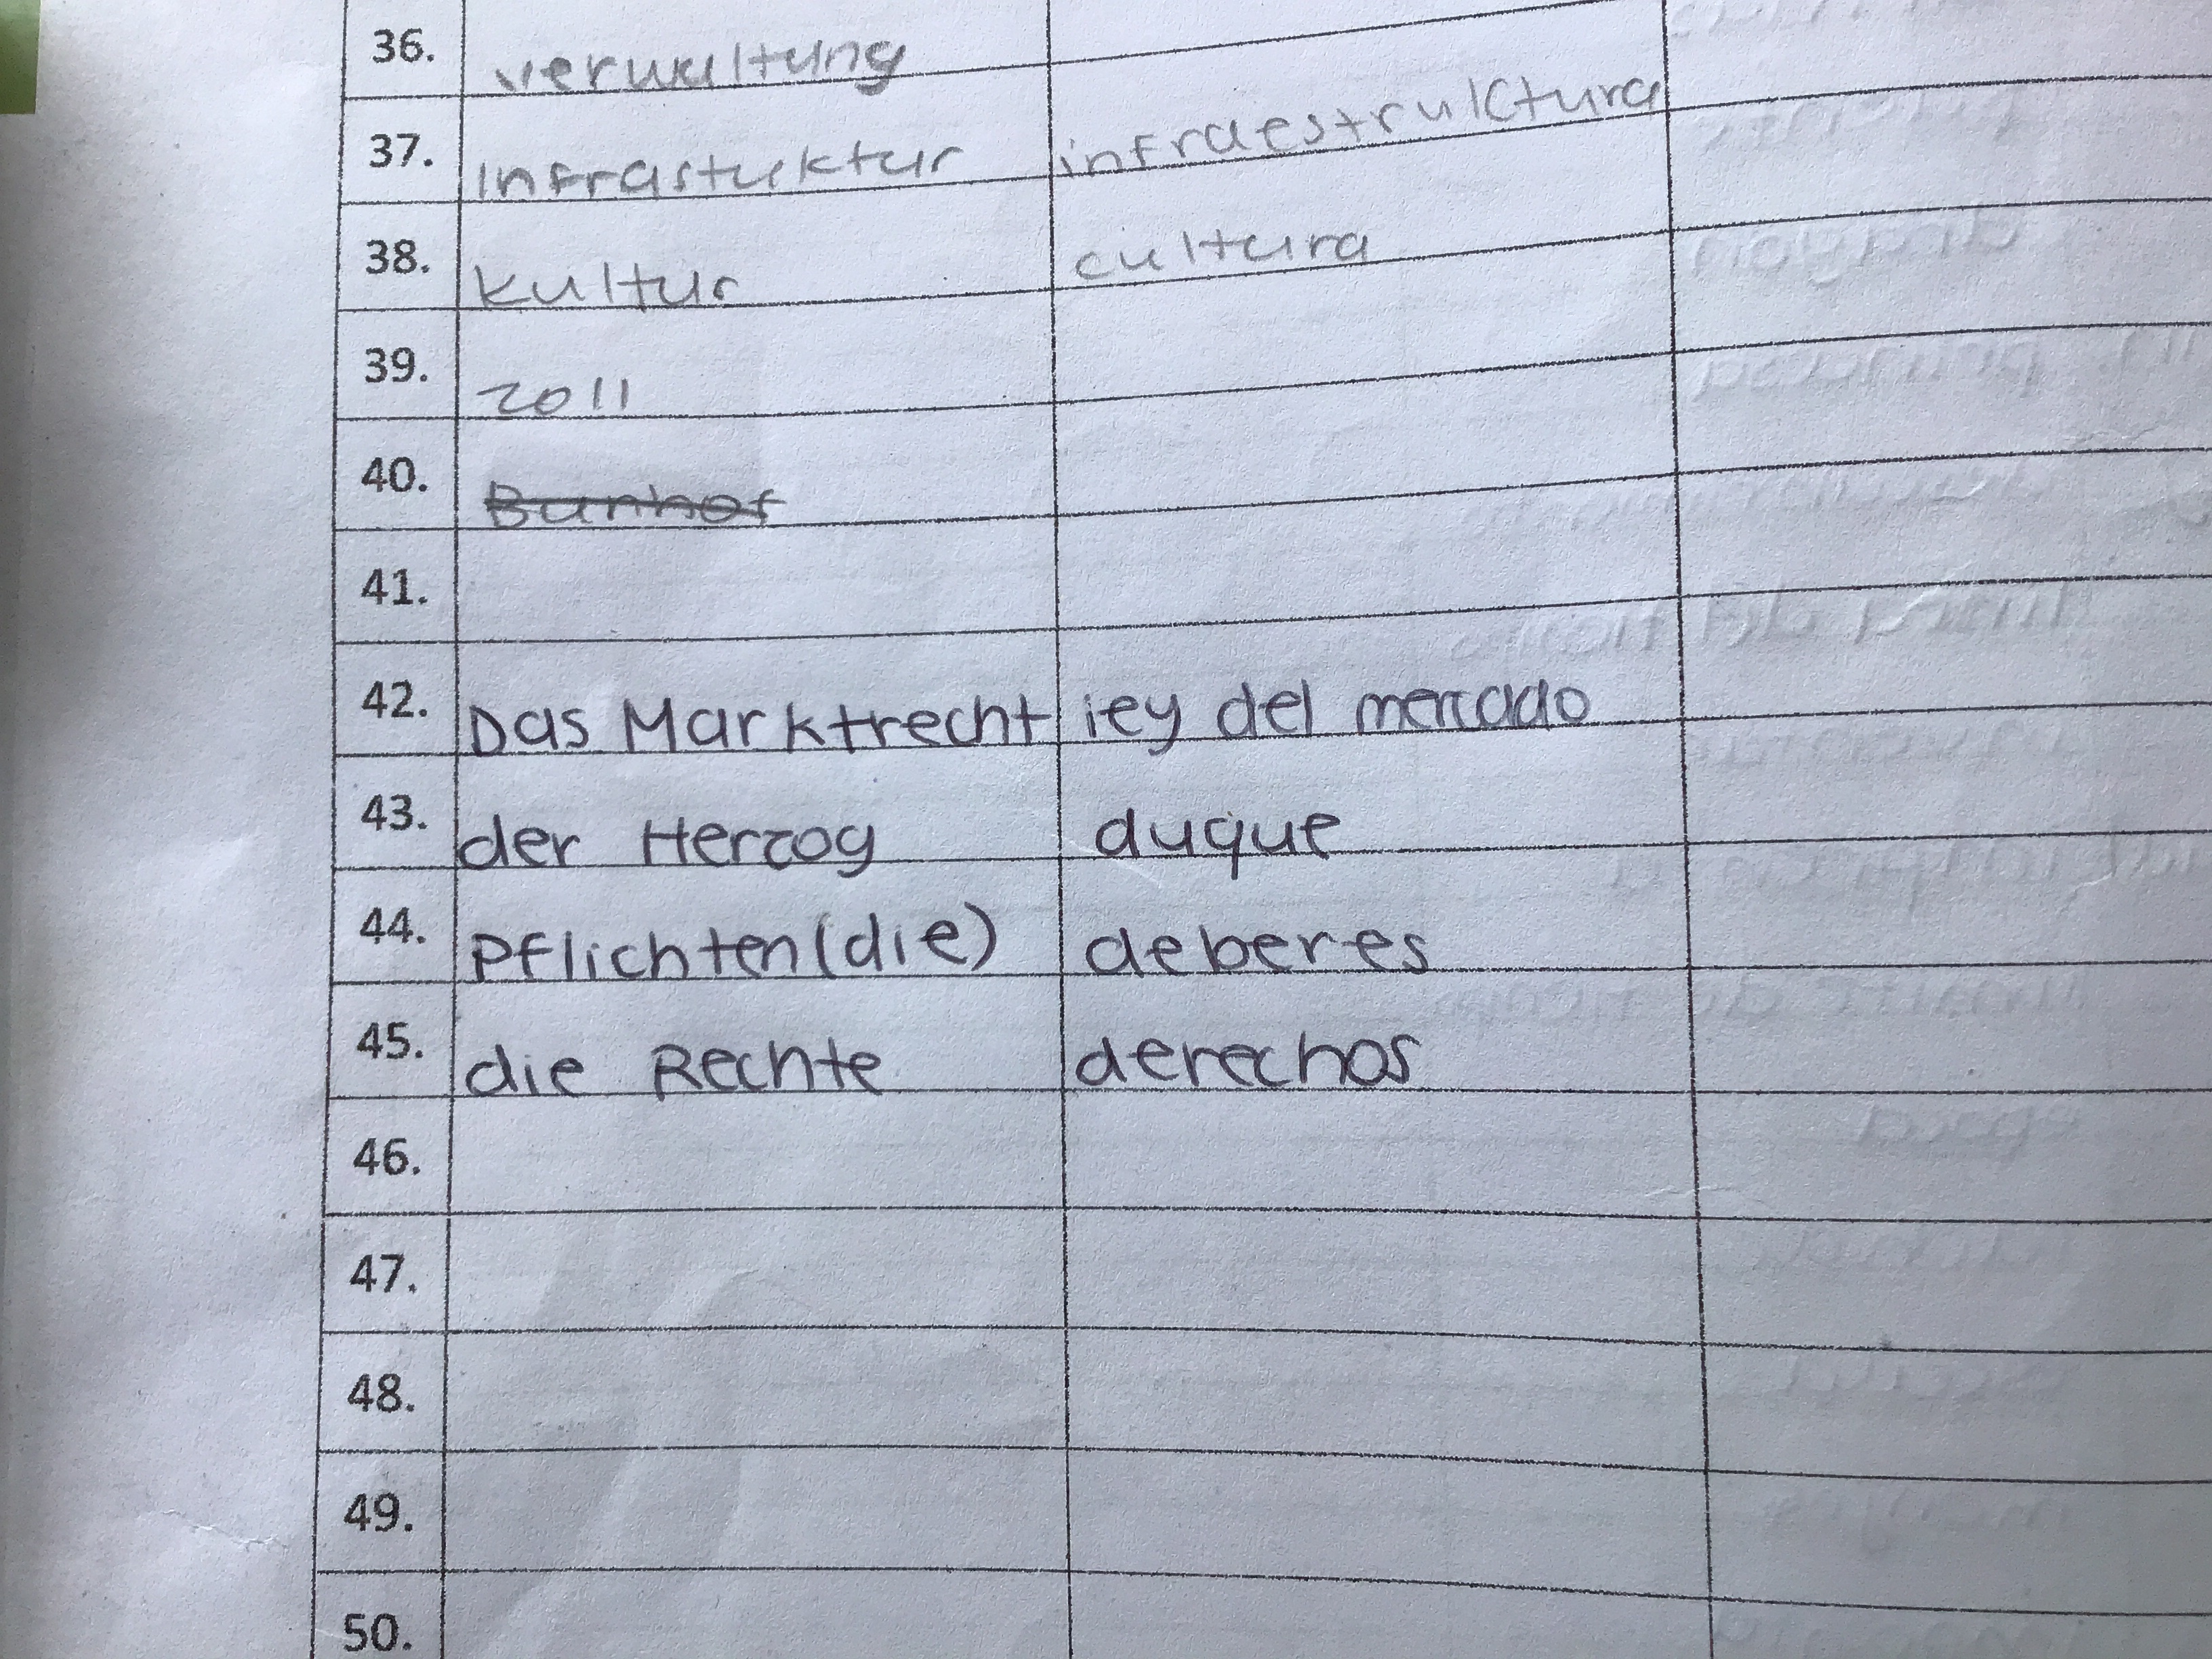 36. verwaltung
37. Infrastuktur infraestruktura
38. Kultur cultura
39. 2011
40. Banhof
41.
42. Das Marktrecht ley del mercado
43. der Herzog duque
44. Pflichten (die) deberes
45. die Rechte derechos
46.
47.
48.
49.
50.